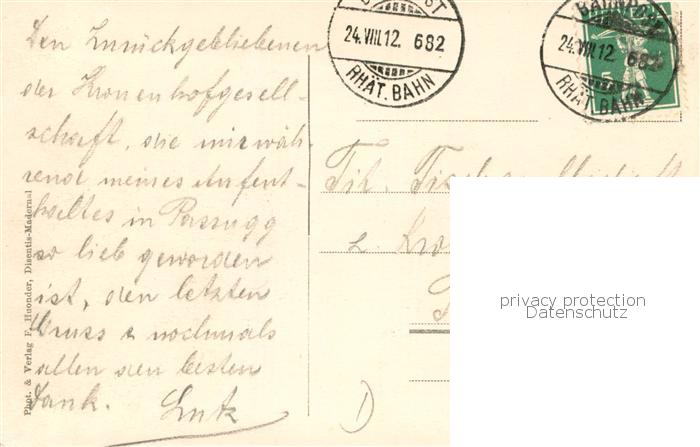 Den Zurückgebliebenen
der Kronenhofgesell-
schaft, die mir wäh-
rend meines Aufent-
haltes in Passugg
so lieb geworden
ist, den letzten
Gruss & nochmals
allen den besten
Dank. Lutz
Phot. & Verlag F. Huonder, Disentis-Maderanal
24.VIII.12. 682
RHÄT. BAHN
BAHNP
24.VIII.12 682
RHÄT. BAHN
5
Tit.
z.
privacy protection
Datenschutz